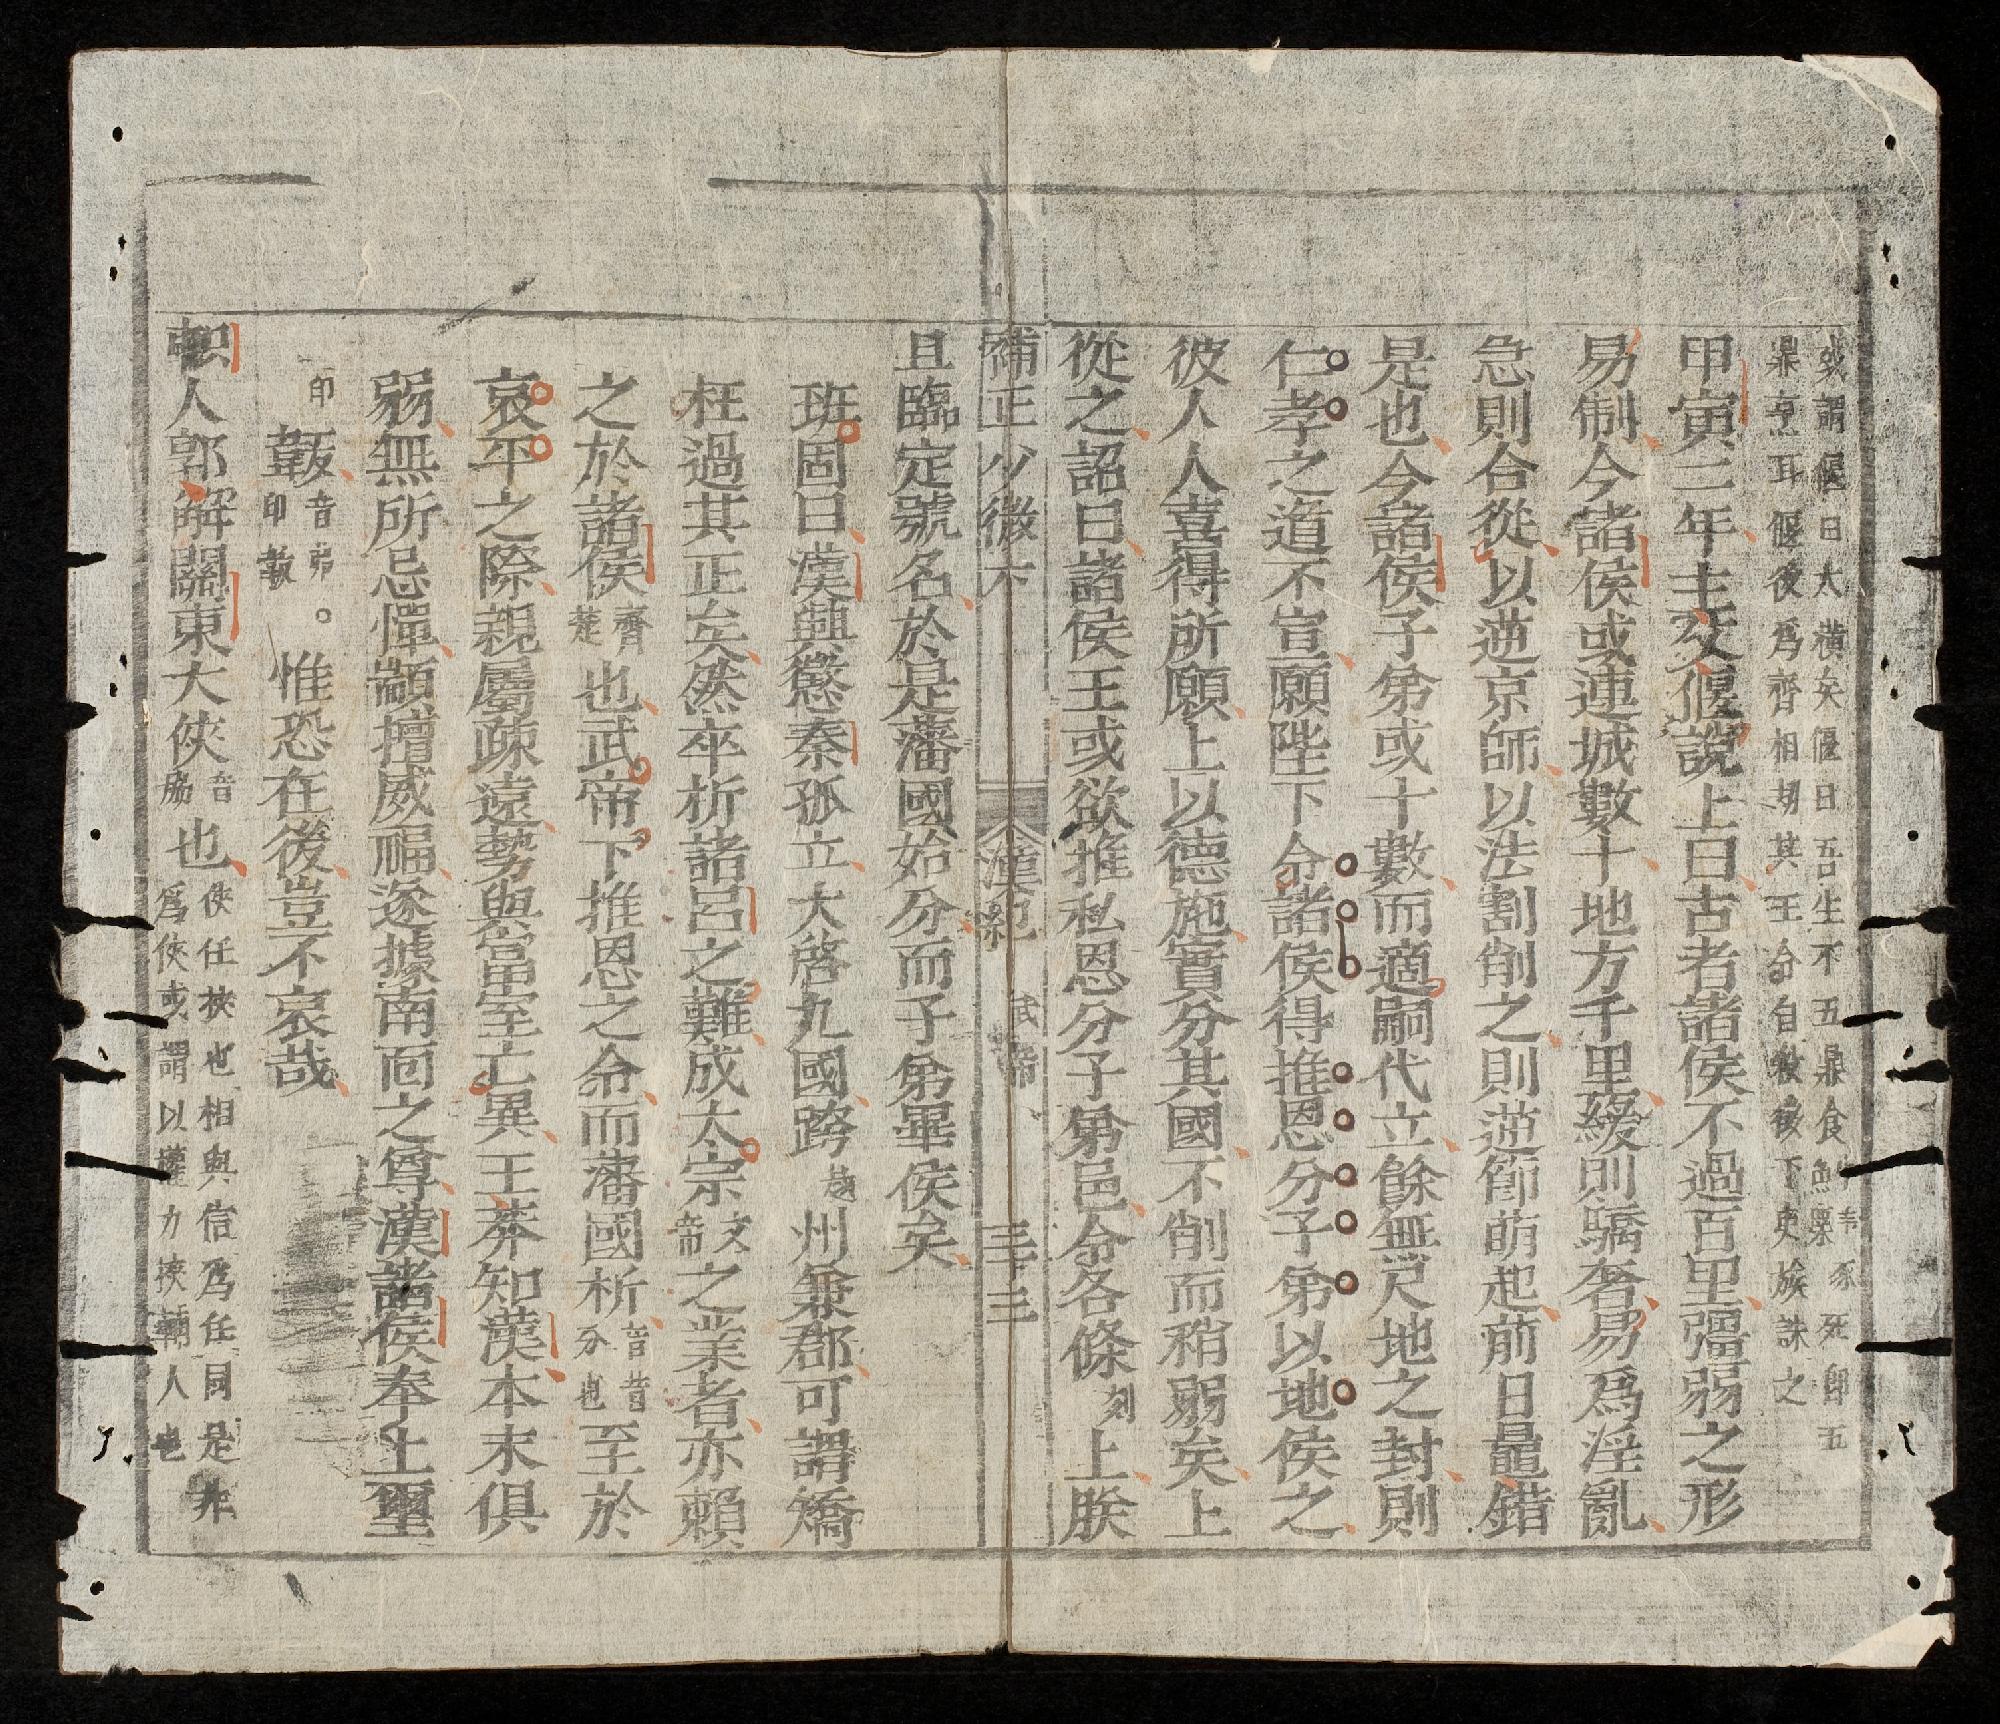 或謂偃曰太橫矣偃曰吾生不五鼎食死即五
鼎烹耳偃後爲齊相刼其王令自殺後下吏族誅之
甲寅二年主父偃說上曰古者諸侯不過百里彊弱之形
易制今諸侯或連城數十地方千里緩則驕奢易爲淫亂
急則合從以逆京師以法割削之則逆節萌起前日鼂錯
是也今諸侯子弟或十數而適嗣代立餘無尺地之封則
仁孝之道不宣願陛下令諸侯得推恩分子弟以地侯之
彼人人喜得所願上以德施實分其國不削而稍弱矣上
從之詔曰諸侯王或欲推私恩分子弟邑令各條刻上朕
補正少微下 漢紀 武帝 三十三
且臨定號名於是藩國始分而子弟畢侯矣
班固曰漢興懲秦孤立大啓九國跨越州兼郡可謂矯
枉過其正矣然卒折諸呂之難成太宗文帝之業者亦賴
之於諸侯齊楚也武帝下推恩之命而藩國析音昔分也至於
哀平之際親屬疎遠勢與富室亡異王莽知漢本末俱
弱無所忌憚顓擅威福遂據南面之尊漢諸侯奉上璽
韍音弗。印韍惟恐在後豈不哀哉
軹人郭解關東大俠音脇也俠任挾也相與信爲任同是非爲俠或謂以權力挾輔人也